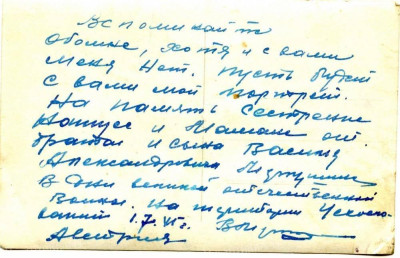 Вспоминайте
обо мне, хотя и с вами
меня нет. Пусть будет
с вами мой портрет.
На память сестренке
и Мамаши от
брата и сына Василия
Александровича
В дни великой отечественной
Войны. На территории Чехосло-
1.7.45г.
Австрия